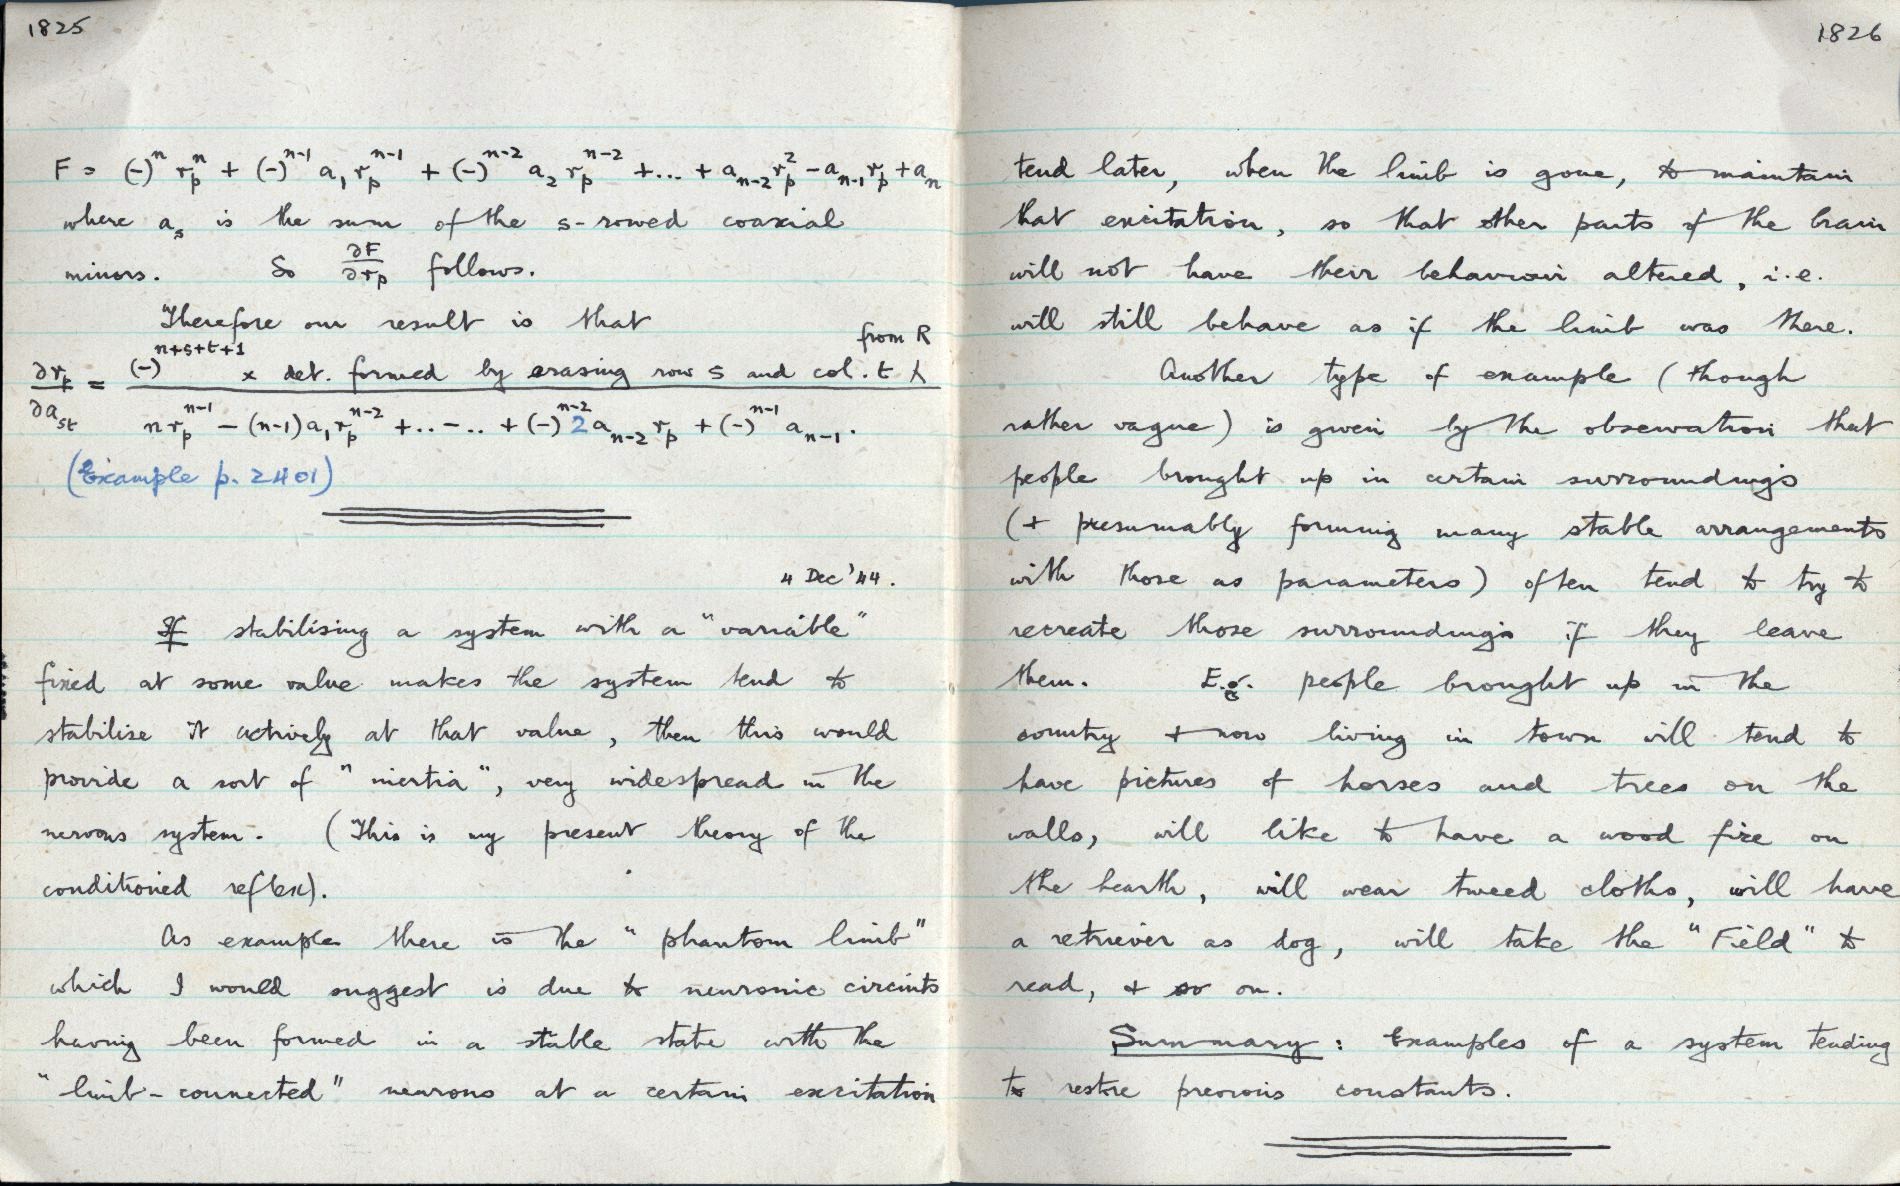 1825
F = (-)ⁿ rₚⁿ + (-)ⁿ⁻¹ a₁ rₚⁿ⁻¹ + (-)ⁿ⁻² a₂ rₚⁿ⁻² +... + aₙ₋₂ rₚ² - aₙ₋₁ rₚ + aₙ
where aₛ is the sum of the s-rowed coaxial
minors. So ∂F/∂rₚ follows.
Therefore our result is that
from R
∂rₚ/∂aₛₜ = (-)ⁿ⁺ˢ⁺ᵗ⁺¹ x det. formed by erasing row s and col. t ⁁
n rₚⁿ⁻¹ - (n-1) a₁ rₚⁿ⁻² + ..-.. + (-)ⁿ⁻² 2 aₙ₋₂ rₚ + (-)ⁿ⁻¹ aₙ₋₁.
(Example p. 2401)
4 Dec '44.
If stabilising a system with a "variable"
fixed at some value makes the system tend to
stabilise it actively at that value, then this would
provide a sort of "inertia", very widespread in the
nervous system. (This is my present theory of the
conditioned reflex).
As example there is the "phantom limb"
which I would suggest is due to neuronic circuits
having been formed in a stable state with the
"limb-connected" neurons at a certain excitation
1826
tend later, when the limb is gone, to maintain
that excitation, so that other parts of the brain
will not have their behaviour altered, i.e.
will still behave as if the limb was there.
Another type of example (though
rather vague) is given by the observation that
people brought up in certain surroundings
(+ presumably forming many stable arrangements
with those as parameters) often tend to try to
recreate those surroundings if they leave
them. E.g. people brought up in the
country + now living in town will tend to
have pictures of horses and trees on the
walls, will like to have a wood fire on
the hearth, will wear tweed cloths, will have
a retriever as dog, will take the "Field" to
read, + so on.
Summary: Examples of a system tending
to restore previous constants.